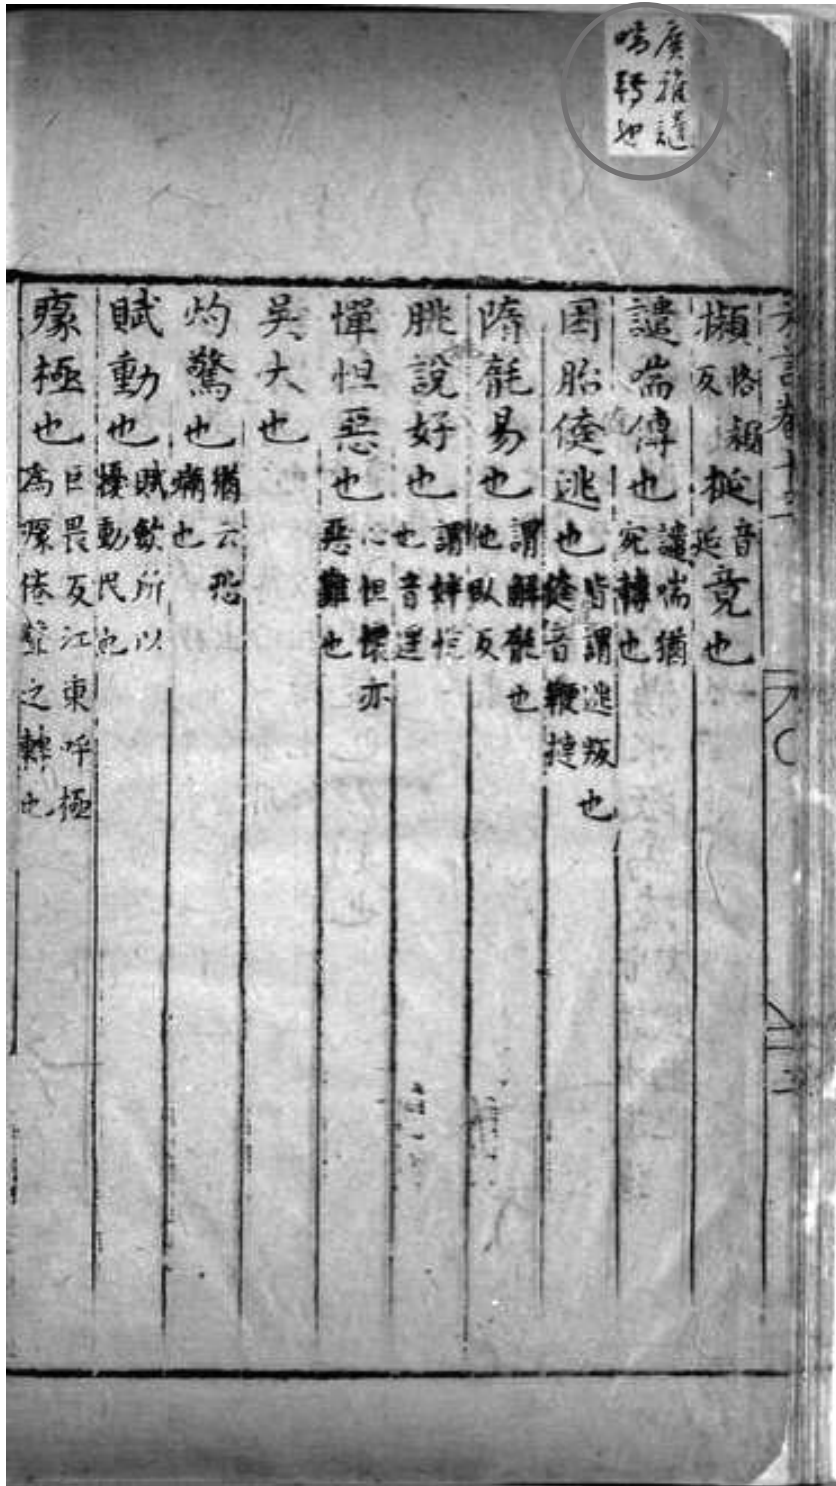 廣雅譴
喘轉也
方言卷十三
攋恪賴反挻音延竟也
譴喘傳也譴喘猶宛轉也
困胎㒓逃也皆謂逃叛也㒓音鞭撻
隋毻易也謂解毻也他臥反
朓說好也謂姅悅也音遙
憚怛惡也心怛懷亦惡難也
吳大也
灼驚也猶云恐痛也
賦動也賦斂所以擾動民也
瘃極也巨畏反江東呼極為瘃倦聲之轉也